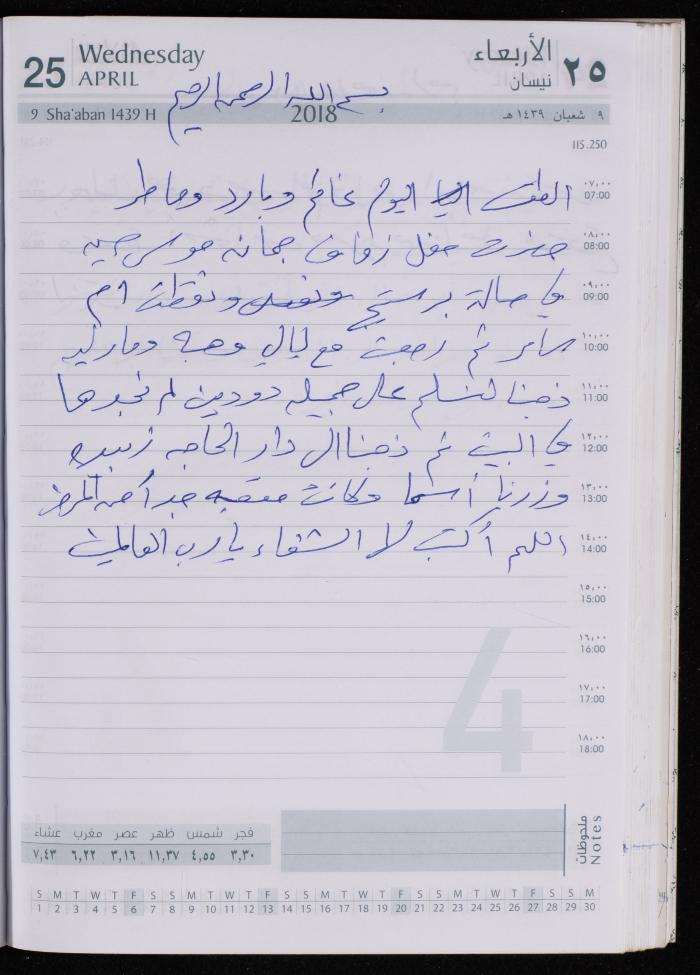 25 Wednesday الأربعاء ٢٥
APRIL نيسان
بسم الله الرحمن الرحيم
9 Sha'aban 1439 H 2018 ٩ شعبان ١٤٣٩ هـ
115.250
٠٧,٠٠
07:00 الطقس اليوم غائم وبارد وماطر
٠٨,٠٠
08:00 حضرت حفل زفاف جمانه موسى
٠٩,٠٠
09:00 في صالة برستيج ونقطت ام
١٠,٠٠
10:00 سامر ثم رجعت مع ليالي وهبه
١١,٠٠
11:00 ذهبنا لنسلم على جميله دودين لم نجدها
١٢,٠٠
12:00 في البيت ثم ذهبنا الى دار الحاجه زبيده
١٣,٠٠
13:00 وزرنا أسما وكانت متعبه جدا من المرض
١٤,٠٠
14:00 اللهم أكتب لها الشفاء يا رب العالمين
١٥,٠٠
15:00
١٦,٠٠
16:00
١٧,٠٠
17:00
١٨,٠٠
18:00
4
فجر شمس ظهر عصر مغرب عشاء
٣,٣٠ ٤,٥٥ ١١,٣٧ ٣,١٦ ٦,٢٢ ٧,٤٣
ملحوظات
Notes
S M T W T F S S M T W T F S S M T W T F S S M T W T F S S M
1 2 3 4 5 6 7 8 9 10 11 12 13 14 15 16 17 18 19 20 21 22 23 24 25 26 27 28 29 30